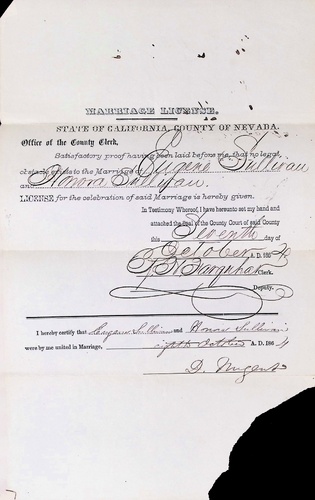 MARRIAGE LICENSE.
STATE OF CALIFORNIA, COUNTY OF NEVADA.
Office of the County Clerk,
Satisfactory proof having been laid before me, that no legal
obstacle exists to the Marriage of Eugene Sullivan
and Honora Sullivan
LICENSE for the celebration of said Marriage is hereby given.
In Testimony Whereof, I have hereunto set my hand and
attached the Seal of the County Court of said County
this Seventh day of
October A. D. 186
Clerk.
Deputy.
I hereby certify that Eugene Sullivan and Honora Sullivan
were by me united in Marriage, eighth October A. D. 1864
D. Nugent